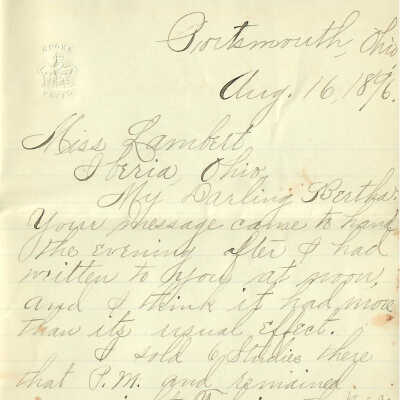 Portsmouth, Ohio
Aug. 16, 1896.
Miss Lambert,
Iberia, Ohio,
My Darling Bertha:
Your message came to hand
the evening after I had
written to you at noon,
and I think it had more
than its usual effect.
I sold 6 Studies there
that P.M. and remained